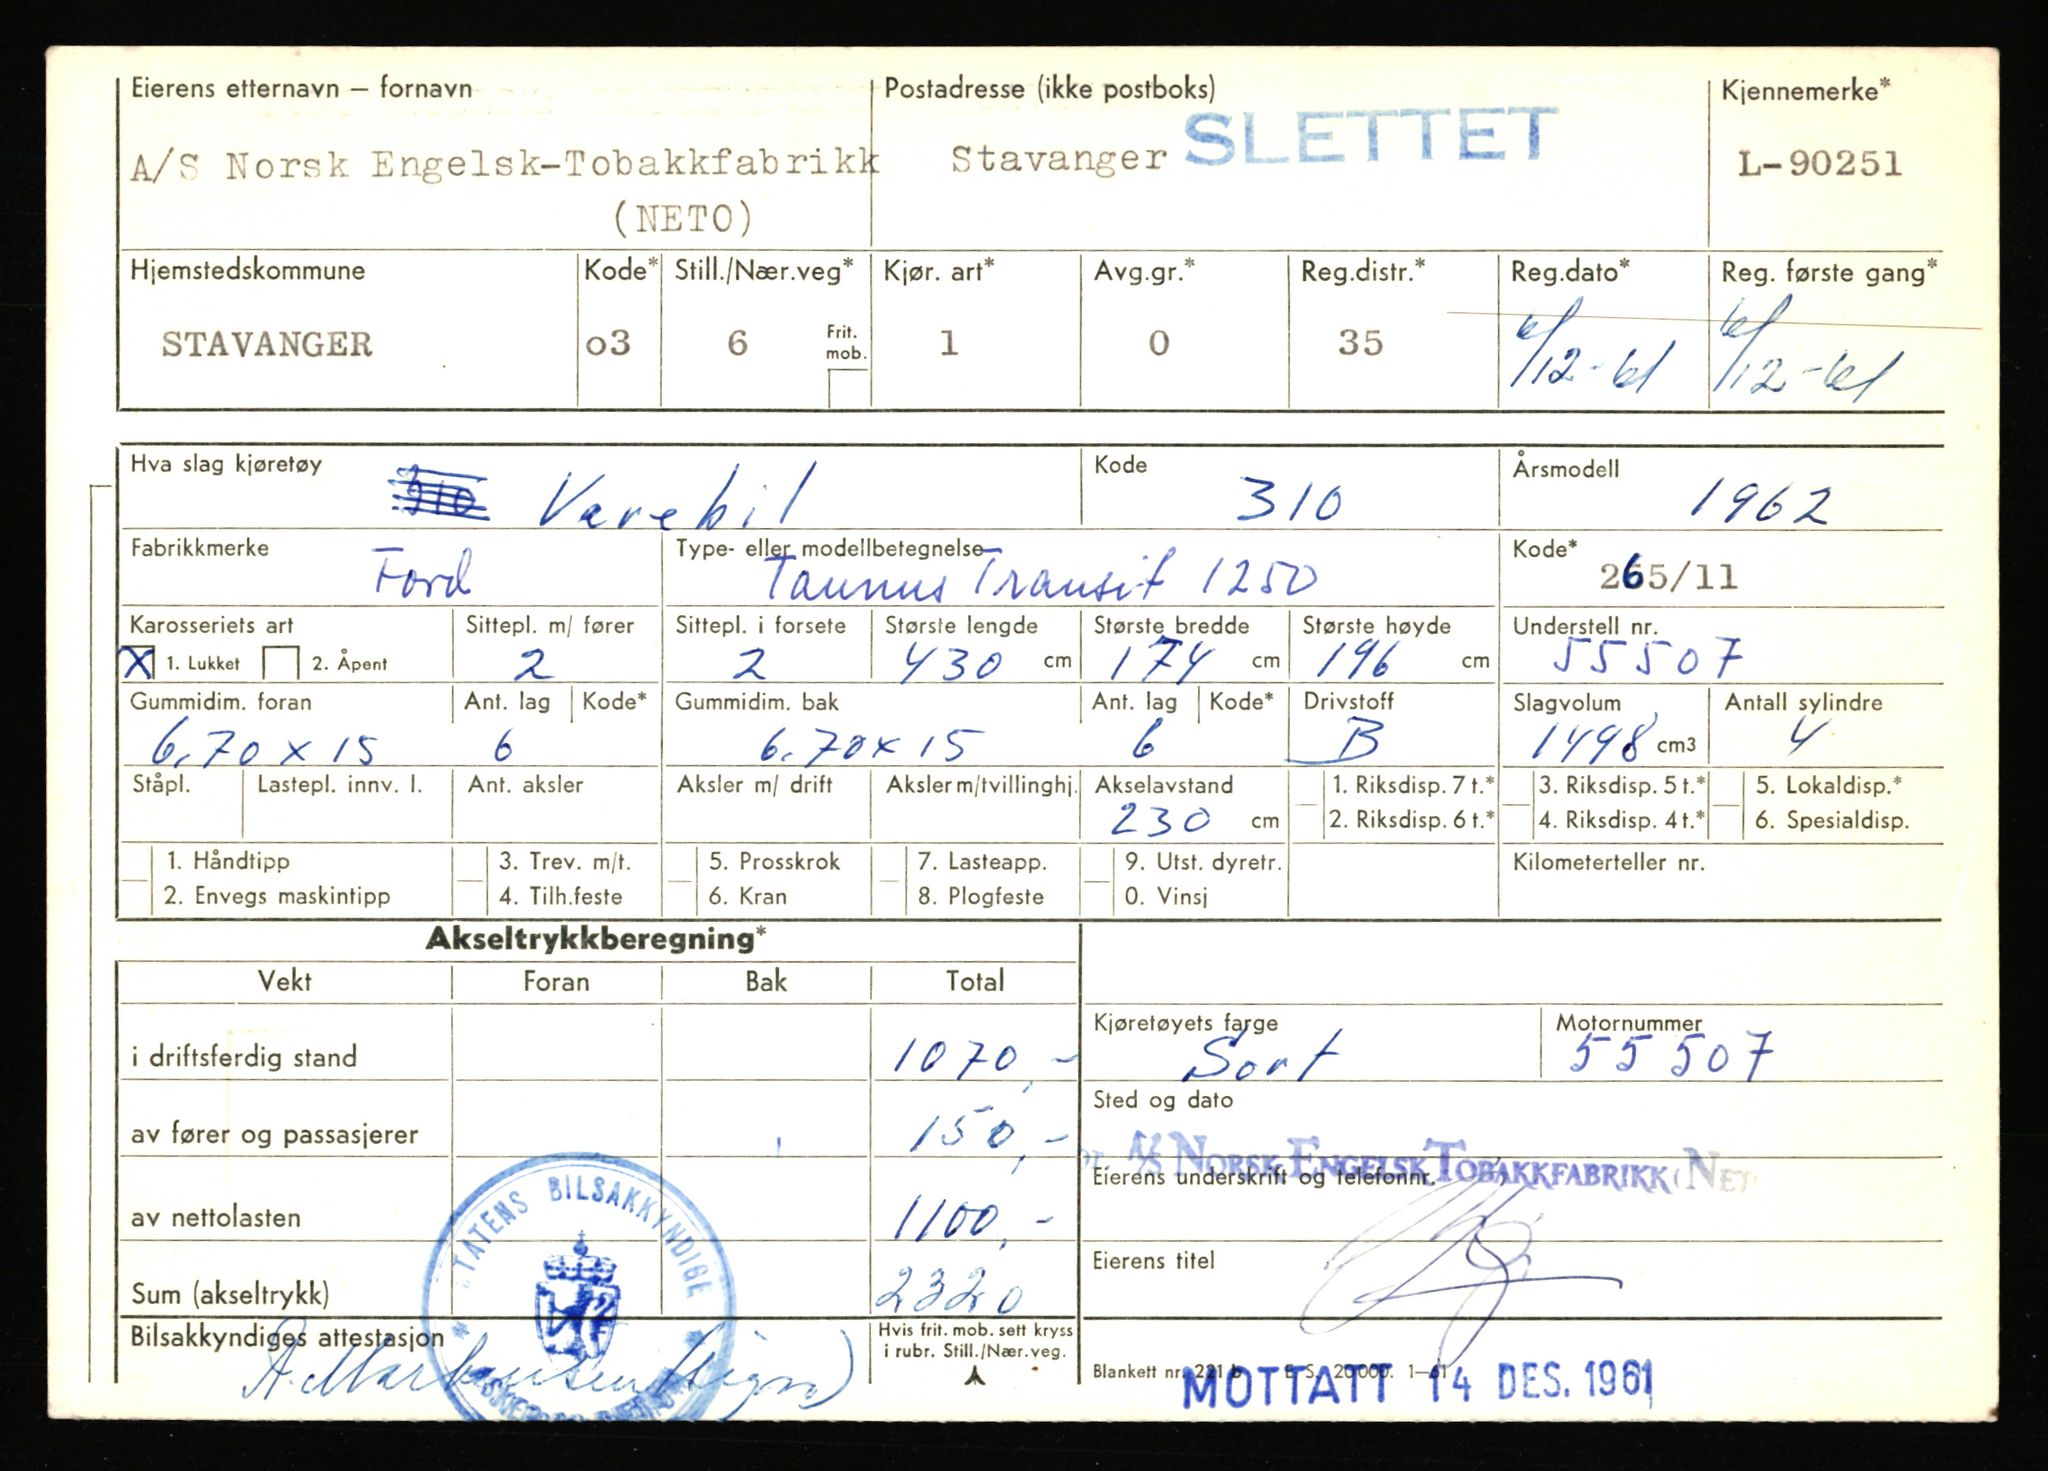 Eierens etternavn – fornavn
Postadresse (ikke postboks)
Kjennemerke*
SLETTET
A/S Norsk Engelsk-Tobakkfabrikk
Stavanger
L-90251
(NETO)
Hjemstedskommune Kode* Still./Nær.veg* Kjør. art* Avg.gr.* Reg.distr.* Reg.dato* Reg. første gang*
STAVANGER o3 6 Frit. mob. 1 0 35 6/12-61 6/12-61
Hva slag kjøretøy Kode Årsmodell
Varebil 310 1962
Fabrikkmerke Type- eller modellbetegnelse Kode*
Ford Taunus Transit 1250 265/11
Karosseriets art Sittepl. m/ fører Sittepl. i forsete Største lengde Største bredde Største høyde Understell nr.
X 1. Lukket 2. Åpent 2 2 430 cm 174 cm 196 cm 55507
Gummidim. foran Ant. lag Kode* Gummidim. bak Ant. lag Kode* Drivstoff Slagvolum Antall sylindre
6.70 x 15 6 6.70 x 15 6 B 1498 cm3 4
Ståpl. Lastepl. innv. l. Ant. aksler Aksler m/ drift Aksler m/tvillinghj. Akselavstand 1. Riksdisp. 7 t.* 3. Riksdisp. 5 t.* 5. Lokaldisp.*
230 cm 2. Riksdisp. 6 t.* 4. Riksdisp. 4 t.* 6. Spesialdisp.
1. Håndtipp 3. Trev. m/t. 5. Prosskrok 7. Lasteapp. 9. Utst. dyretr. Kilometerteller nr.
2. Envegs maskintipp 4. Tilh.feste 6. Kran 8. Plogfeste 0. Vinsj
Akseltrykkberegning*
Vekt Foran Bak Total
Kjøretøyets farge Motornummer
i driftsferdig stand 1070,- Sort 55507
Sted og dato
av fører og passasjerer 150,-
A/S NORSK ENGELSK TOBAKKFABRIKK (NET
Eierens underskrift og telefonnr.
av nettolasten 1100,-
Eierens titel
Sum (akseltrykk) 2320
STATENS BILSAKKYNDIGE
Bilsakkyndiges attestasjon
Hvis frit. mob. sett kryss
i rubr. Still./Nær.veg.
Blankett nr. 221 b E. S. 20.000. 1–61
MOTTATT 14 DES. 1961